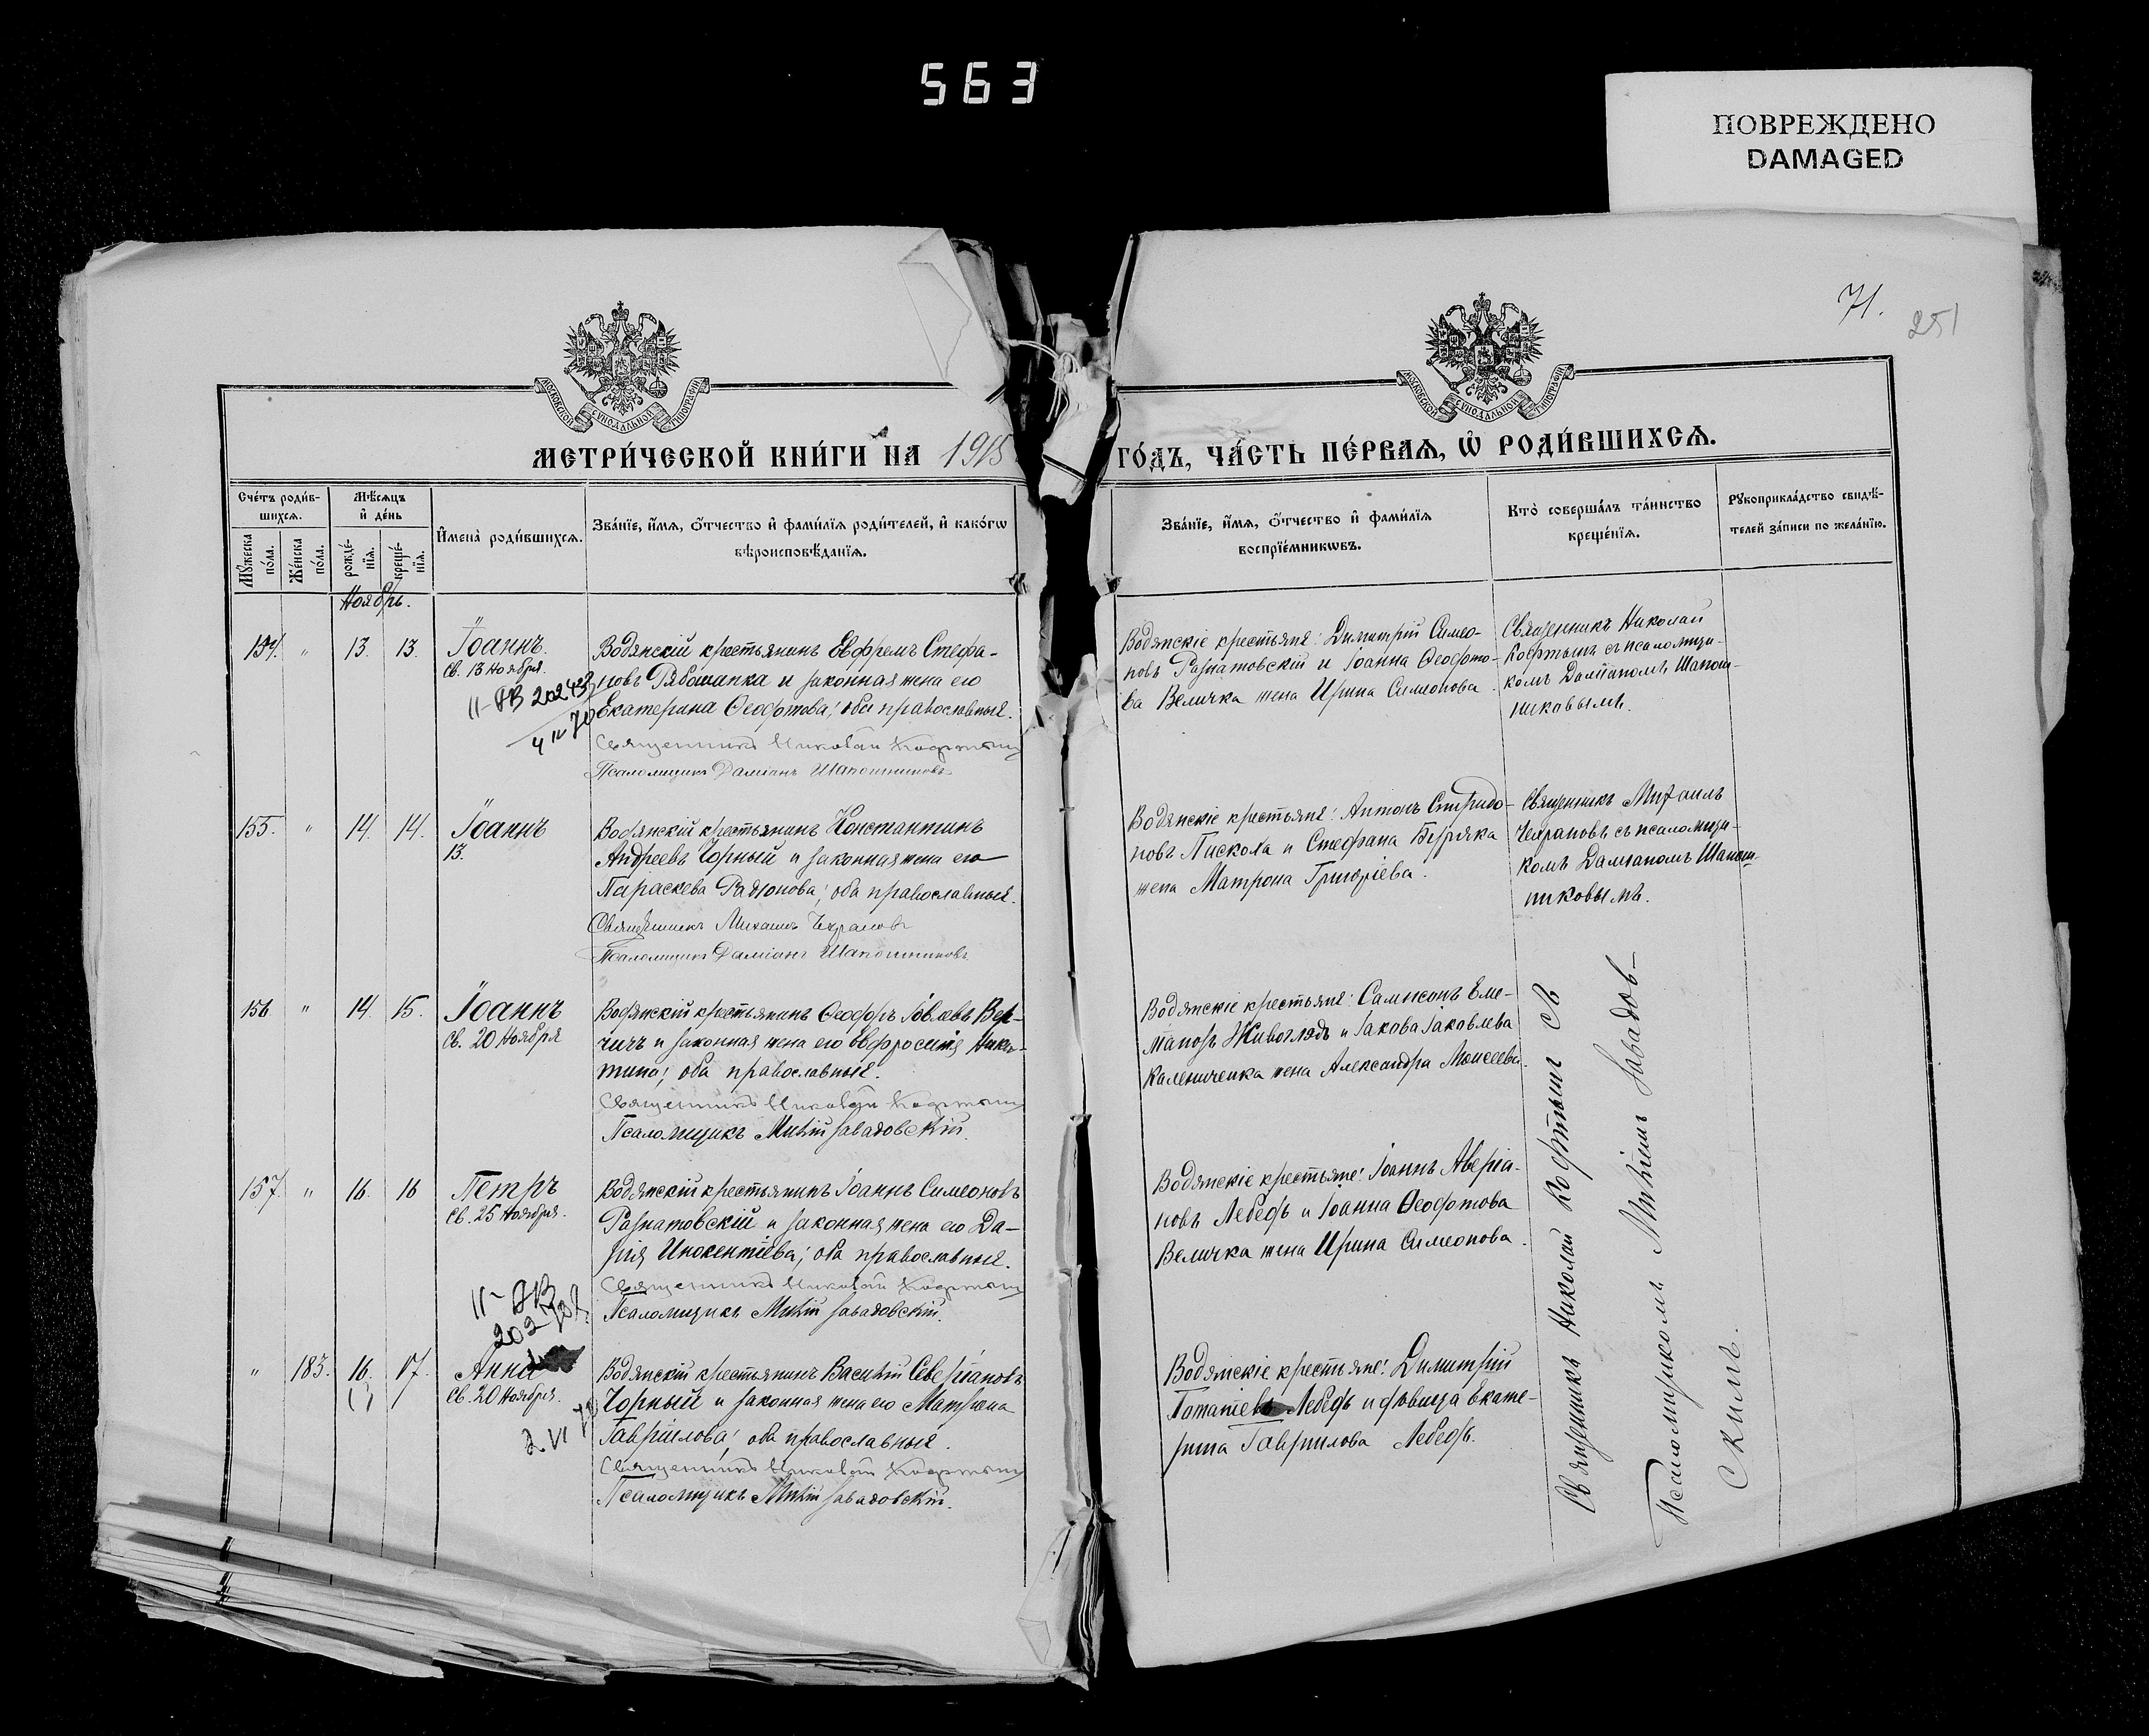 563
ПОВРЕЖДЕНО
DAMAGED
71.
251
МОСКОВСКОЙ СУНОДАЛЬНОЙ ТИПОГРАФІИ
МОСКОВСКОЙ СУНОДАЛЬНОЙ ТИПОГРАФІИ
МЕТРИ́ЧЕСКОЙ КНИ́ГИ НА 1915 ГО́ДЪ, ЧА́СТЬ ПЕ́РВАѦ, Ѡ҆ РОДИ́ВШИХСѦ.
Сче́тъ роди́в-
шихсѧ.
Мѣ́сѧцъ
и҆ де́нь
Мꙋ́жеска
по́ла.
Же́нска
по́ла.
рожде́-
нїѧ.
креще́-
нїѧ.
И҆мена̀ роди́вшихсѧ.
Зва́нїе, и҆́мѧ, ѻ҆́тчество и҆ фами́лїѧ роди́телей, и҆ како́гѡ
вѣроисповѣ́данїѧ.
Зва́нїе, и҆́мѧ, ѻ҆́тчество и҆ фами́лїѧ
воспрїе́мникѡвъ.
Кто̀ соверша́лъ та́инство
креще́нїѧ.
Рꙋкоприкла́дство свидѣ́-
телей за́писи по жела́нїю.
Ноябрь.
154. " 13. 13. Іоаннъ.
Св. 13 Ноября.
II-ЯВ 202433
4 IV 70
Водянскій крестьянинъ Евфремъ Стефа-
новъ Рябошапка и законная жена его
Екатерина Ѳеофтова; оби православные.
Священникъ Николай Кофтынъ
Псаломщикъ Даміанъ Шапошниковъ
Водянскіе крестьяне: Димитрій Симео-
новъ Разнатовскій и Іоанна Ѳеофто-
ва Величка жена Ирина Симеонова.
Священникъ Николай
Кофтынъ съ псаломщи-
комъ Даміаномъ Шапош-
никовымъ.
155. " 14. 14. Іоаннъ
13.
Водянскій крестьянинъ Константинъ
Андреевъ Чорный и законная жена его
Параскева Радіонова; оба православные.
Священникъ Михаилъ Чехрановъ
Псаломщикъ Даміанъ Шапошниковъ
Водянскіе крестьяне: Антонъ Спиридо-
новъ Пискола и Стефана Бурряка
жена Матрона Григоріева.
Священникъ Михаилъ
Чехрановъ съ псаломщи-
комъ Даміаномъ Шапош-
никовымъ.
156 " 14. 15. Іоаннъ
Св. 20 Ноября
Водянскій крестьянинъ Ѳеодоръ Іовлевъ Вер-
чичъ и законная жена его Евфросинія Ники-
тина; оба православные.
Священникъ Николай Кофтынъ
Псаломщикъ Михій Завадовскій.
Водянскіе крестьяне: Самсонъ Еме-
лановъ Живоглядъ и Іакова Іаковлева
Калениченка жена Александра Моисеева.
157. " 16. 16 Петръ
Св. 25 Ноября.
Водянскій крестьянинъ Іоаннъ Симеоновъ
Разнатовскій и законная жена его Да-
рія Инокентіева; оба православные.
Священникъ Николай Кофтынъ
Псаломщикъ Михій Завадовскій.
Водянскіе крестьяне: Іоаннъ Аверіа-
новъ Лебедь и Іоанна Ѳеофтова
Величка жена Ирина Симеонова.
II-ЯВ
202
" 183. 16. 17. Анна
Св. 20 Ноября.
2 VI 78
Водянскій крестьянинъ Василій Северіановъ
Чорный и законная жена его Матрона
Гавріилова; оба православные.
Священникъ Николай Кофтынъ
Псаломщикъ Михій Завадовскій.
Водянскіе крестьяне: Димитрій
Потапіевъ Лебедь и дѣвица Екате-
рина Гавриилова Лебедь.
Священникъ Николай Кофтынъ съ
Псаломщикомъ Михіимъ Завадов-
скимъ.